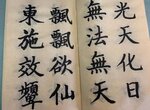 光天化日
無法無天
飄飄欲仙
東施效顰